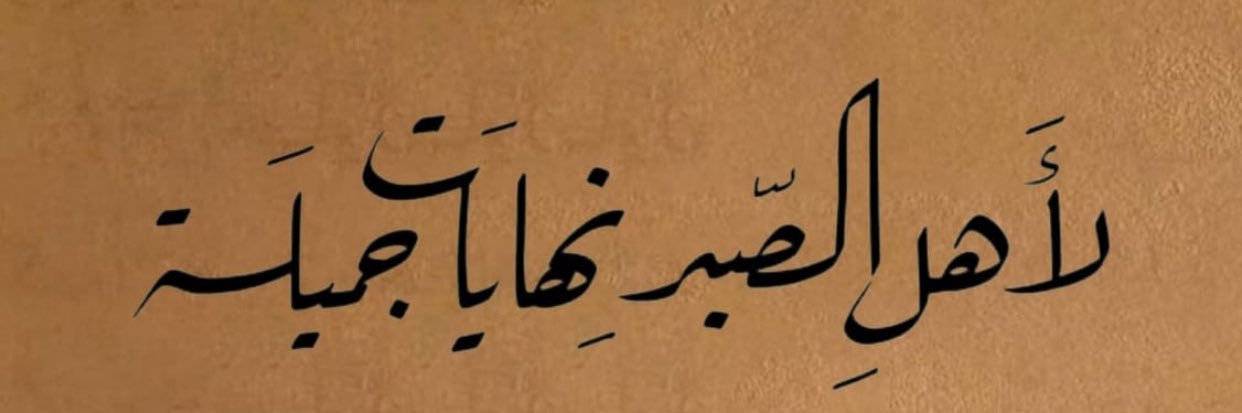 لأَهلِ الصّبر نِهايَات جميلَة